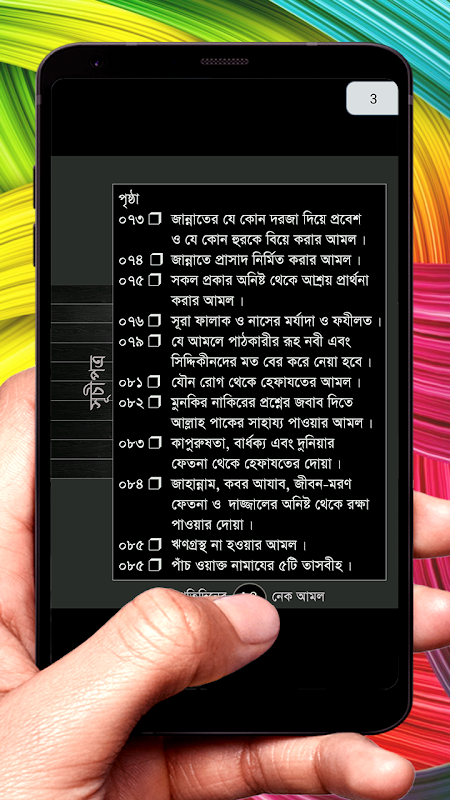 3
পৃষ্ঠা
০৭৩ জান্নাতের যে কোন দরজা দিয়ে প্রবেশ
ও যে কোন হুরকে বিয়ে করার আমল।
০৭৪ জান্নাতে প্রাসাদ নির্মিত করার আমল।
০৭৫ সকল প্রকার অনিষ্ট থেকে আশ্রয় প্রার্থনা
করার আমল।
০৭৬ সূরা ফালাক ও নাসের মর্যাদা ও ফযীলত।
০৭৯ যে আমলে পাঠকারীর রূহ নবী এবং
সিদ্দিকীনদের মত বের করে নেয়া হবে।
০৮১ যৌন রোগ থেকে হেফাযতের আমল।
০৮২ মুনকির নাকিরের প্রশ্নের জবাব দিতে
আল্লাহ পাকের সাহায্য পাওয়ার আমল।
০৮৩ কাপুরুষতা, বার্ধক্য এবং দুনিয়ার
ফেতনা থেকে হেফাযতের দোয়া।
০৮৪ জাহান্নাম, কবর আযাব, জীবন-মরণ
ফেতনা ও দাজ্জালের অনিষ্ট থেকে রক্ষা
পাওয়ার দোয়া।
০৮৫ ঋণগ্রস্থ না হওয়ার আমল।
০৮৫ পাঁচ ওয়াক্ত নামাযের ৫টি তাসবীহ।
সূচীপত্র
নেক আমল